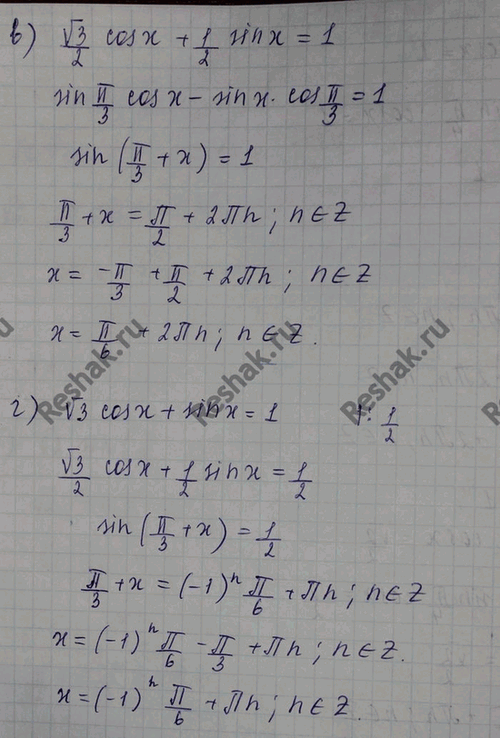 в) √3/2 cosx + 1/2 sinx = 1
sin π/3 cosx - sinx · cos π/3 = 1
sin(π/3 + x) = 1
π/3 + x = π/2 + 2πn; n ∈ Z
x = -π/3 + π/2 + 2πn; n ∈ Z
x = π/6 + 2πn; n ∈ Z.
Reshak.ru Reshak.ru Reshak.ru
г) √3 cosx + sinx = 1 | : 1/2
√3/2 cosx + 1/2 sinx = 1/2
sin(π/3 + x) = 1/2
π/3 + x = (-1)ⁿ π/6 + πn; n ∈ Z
x = (-1)ⁿ π/6 - π/3 + πn; n ∈ Z.
x = (-1)ⁿ π/6 + πn; n ∈ Z.